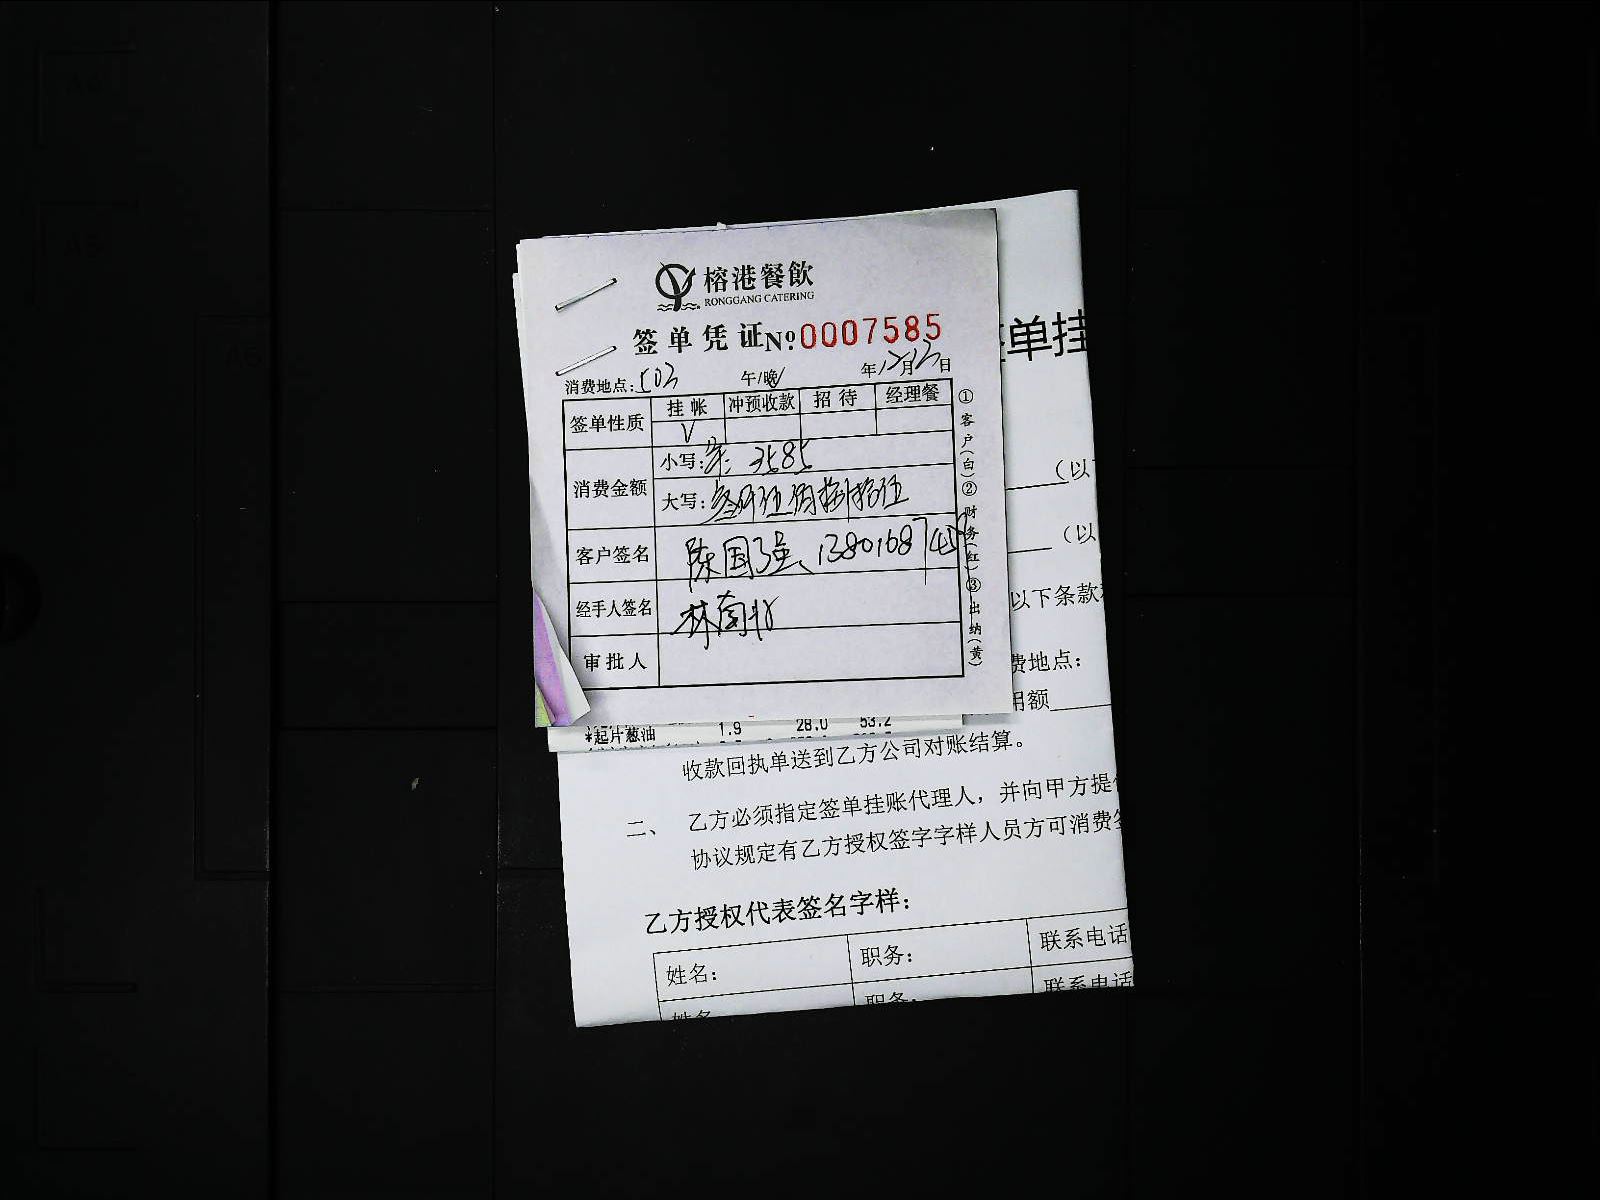 榕港餐飲
RONGGANG CATERING
签单凭证 № 0007585
消费地点:503 午/晚 年12月12日
签单性质 挂帐 冲预收款 招待 经理餐
V
消费金额 小写: 3585
大写:叁仟伍佰捌拾伍
客户签名 陈国强、
经手人签名 林南
审批人
①客户(白)②财务(红)③出纳(黄)
单挂
(以
(以
以下条款
费地点:
用额
*起片葱油 1.9 28.0 53.2
收款回执单送到乙方公司对账结算。
二、 乙方必须指定签单挂账代理人,并向甲方提
协议规定有乙方授权签字字样人员方可消费
乙方授权代表签名字样:
姓名: 职务: 联系电话
姓名 职务: 联系电话
A6
A5
A6